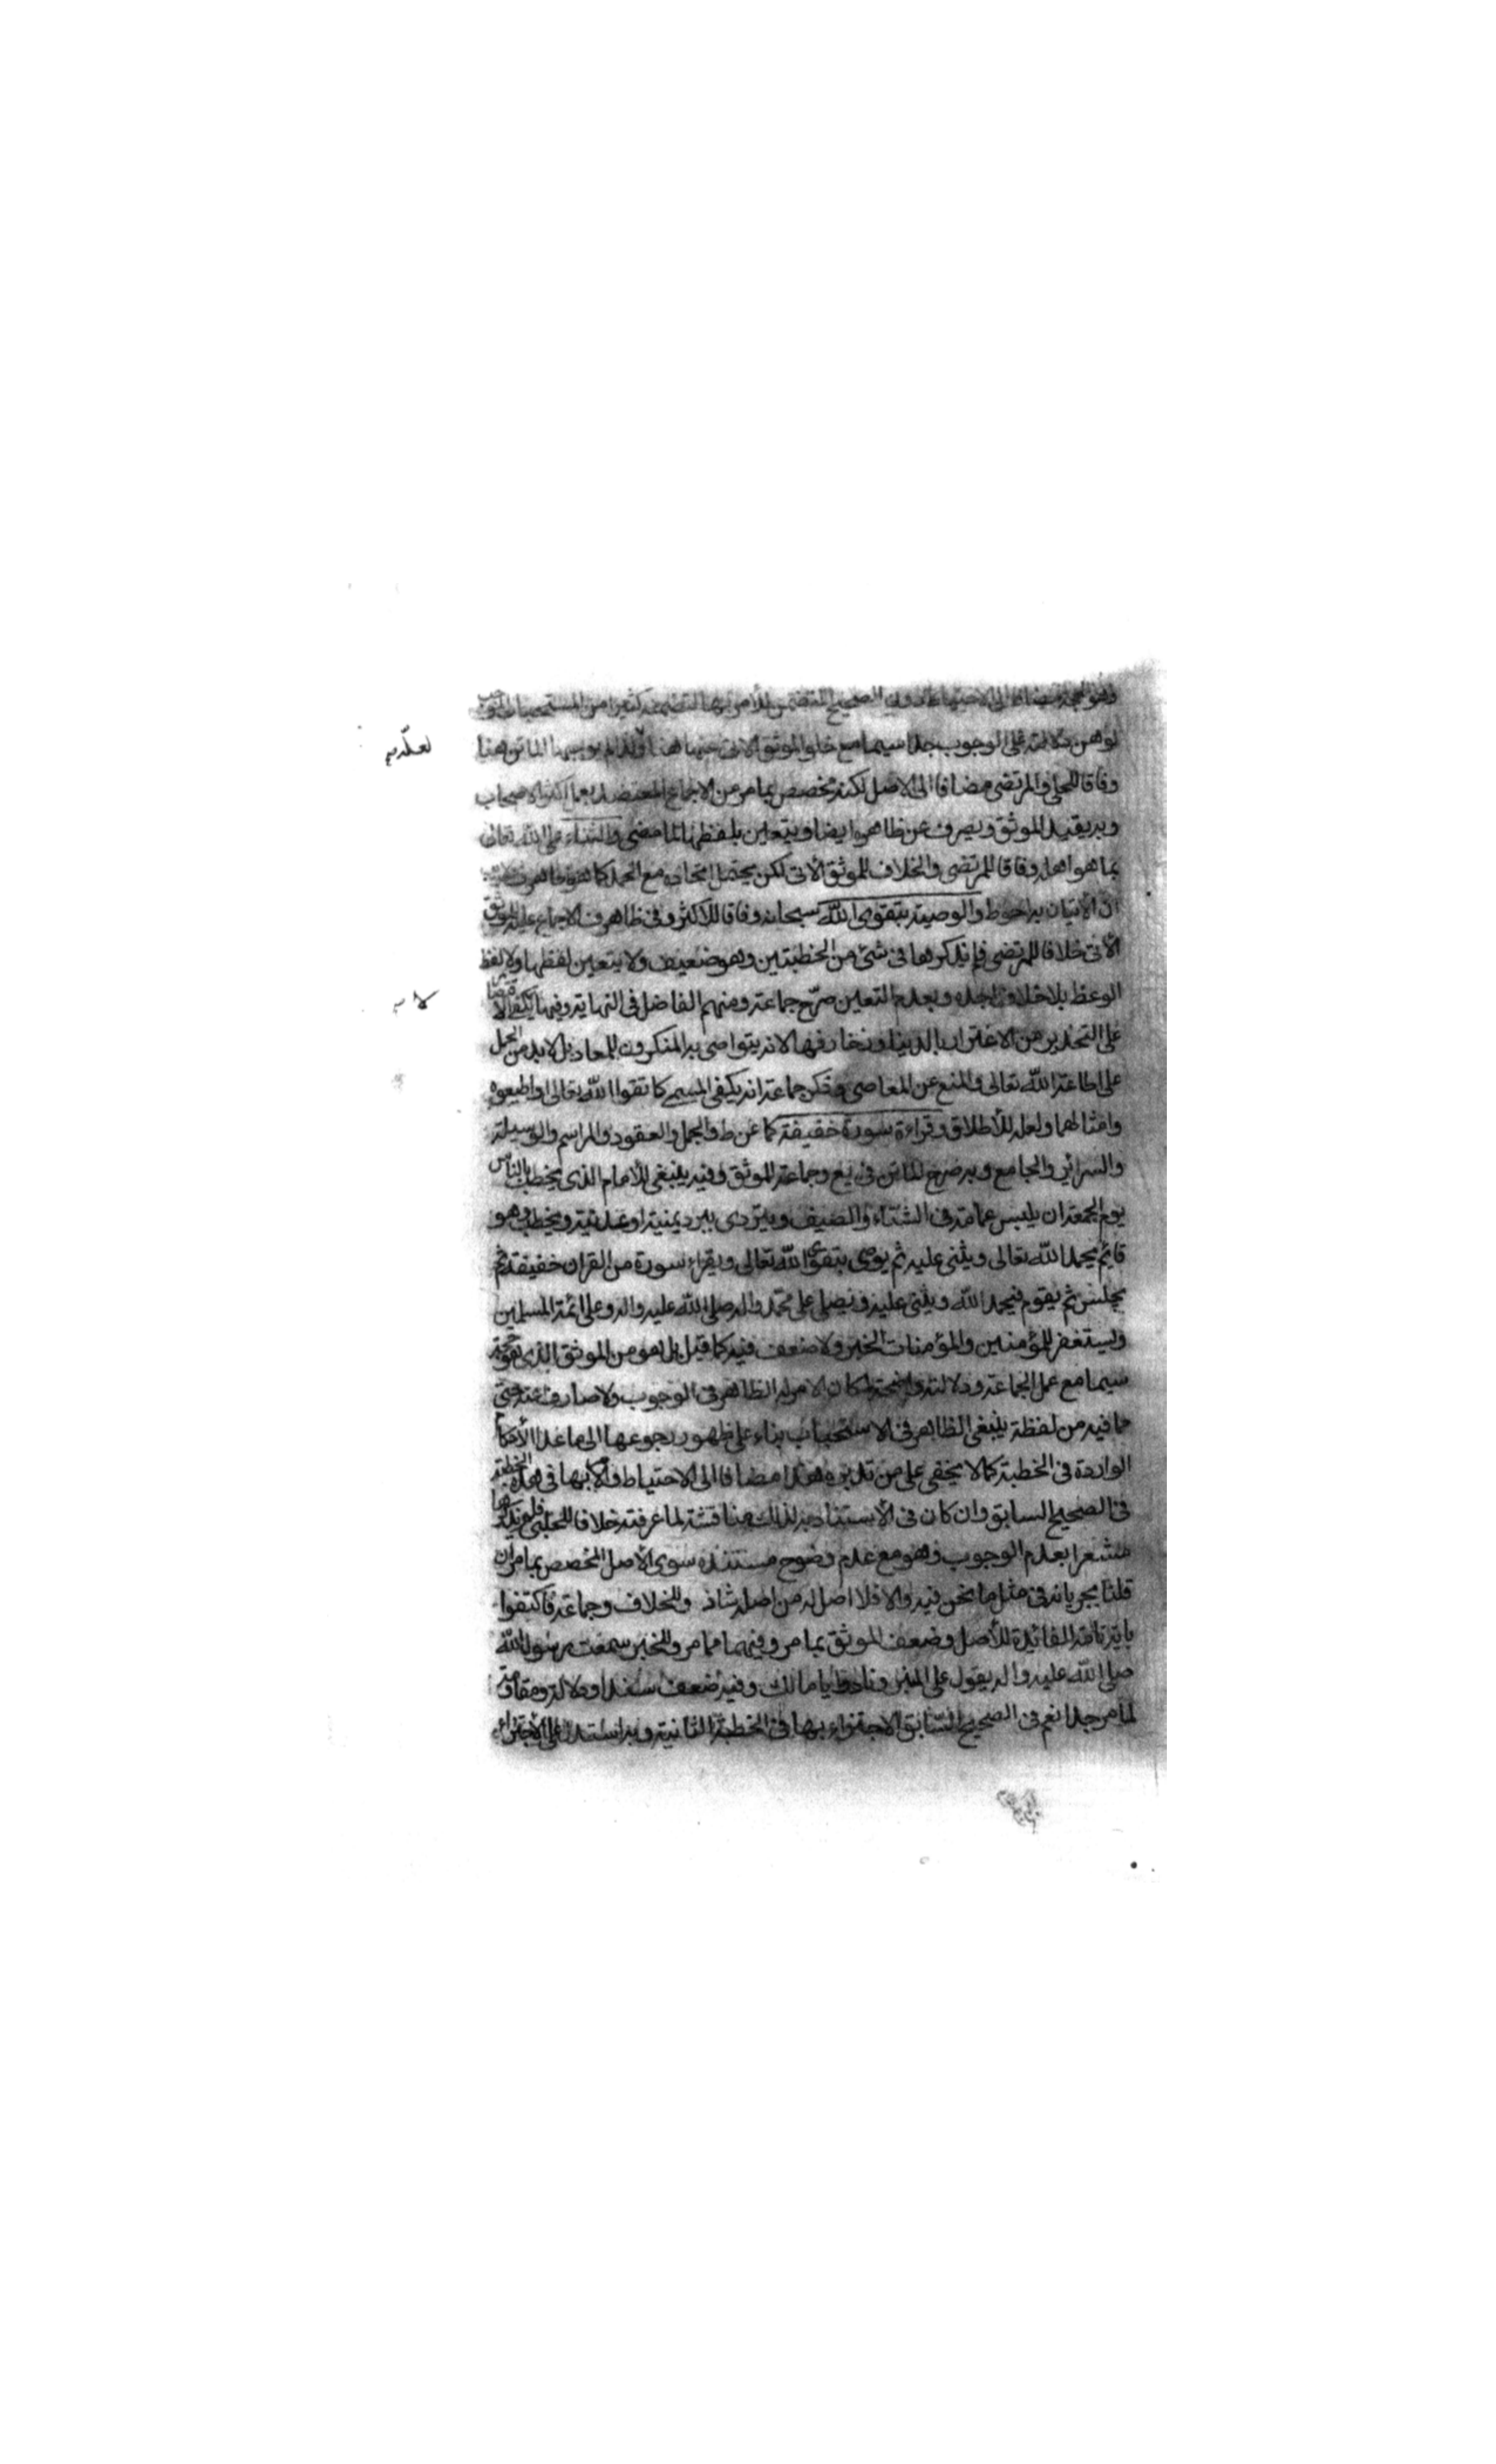 وهو الحجة مضافا الى الاحتياط دون الصحيح المتضمن للأمر بها لتضمنه كثيرا من المستحبات الموجب
لوهن دلالته على الوجوب جدا سيما مع خلو الموثق الاتى عنها هنا ولذا لم يوجبها الماتن هنا
لعله
وفاقا للحلي والمرتضى مضافا الى الاصل لكنه مخصص بما مر من الاجماع المعتضد بعمل اكثر الاصحاب
وبه يقيد الموثق ويصرف عن ظاهره ايضا ويتعين بلفظها لما مضى والثناء على الله تعالى
بما هو اهله وفاقا للمرتضى والخلاف للموثق الأتى لكن يحتمل اتحاده مع الحمد كما هو ظاهر
ان الأتيان به احوط والوصية بتقوى الله سبحانه وفاقا للاكثر وفى ظاهر ف الاجماع عليه للموثق
الأتى خلافا للمرتضى فلم يذكرها فى شئ من الخطبتين وهو ضعيف ولا يتعين لفظها ولا لفظ
الوعظ بلا خلاف اجده وبعدم التعين صرح جماعة ومنهم الفاضل فى النهاية وفيها لا يكفى الاقتصار
لا
على التحذير من الاغترار بالدنيا وزخارفها لانه يتواصى به المنكرون للمعاد بل لابد من الحمل
على اطاعة الله تعالى والمنع عن المعاصى وذكر جماعة انه يكفى المسمى كاتقوا الله تعالى او اطيعوه
وامثالهما ولعله للأطلاق وقراءة سورة خفيفة كما عن ط والجمل والعقود والمراسم والوسيلة
والسرائر والجامع وبه صرح الماتن فى يع وجماعة للموثق وفيه ينبغى للامام الذى يخطب بالناس
يوم الجمعة ان يلبس عمامة فى الشتاء والصيف ويتردى ببرد يمنية او عدنية ويخطب وهو
قايم يحمد الله تعالى ويثنى عليه ثم يوصى بتقوى الله تعالى ويقراء سورة من القران خفيفة ثم
يجلس ثم يقوم فيحمد الله ويثنى عليه ويصلى على محمد واله صلى الله عليه واله وعلى ائمة المسلمين
ويستغفر للمؤمنين والمؤمنات الخبر ولا ضعف فيه كما قيل بل هو من الموثق الذى هو حجة
سيما مع عمل الجماعة ودلالته واضحة لمكان الامر له الظاهر فى الوجوب ولا صارف عنه حتى
ما فيه من لفظة ينبغى الظاهر فى الاستحباب بناء على ظهور رجوعها الى ما عدا الأحكام
الواردة فى الخطبة كما لا يخفى على من تدبره هذا مضافا الى الاحتياط والأمر بها فى هذه الخطبة
فى الصحيح السابق وان كان فى الأستناد به لذلك مناقشة لما عرفته خلافا للحلبى فلم يذكرها
مشعرا بعدم الوجوب وهو مع عدم وضوح مستنده سوى الأصل المخصص بما مر ان
قلنا بجريانه فى مثل ما نحن فيه والا فلا اصل له من اصله شاذ وللخلاف وجماعة فاكتفوا
باية تامة الفائدة للأصل وضعف الموثق بما مر وفيهما ما مر وللخبر سمعت رسول الله
صلى الله عليه واله يقول على المنبر ونادوا يا مالك وفيه ضعف سندا ودلالة ومقاومة
لما مر جدا نعم فى الصحيح السابق الاجتزاء بها فى الخطبة الثانية وبه استدل على الاجتزاء